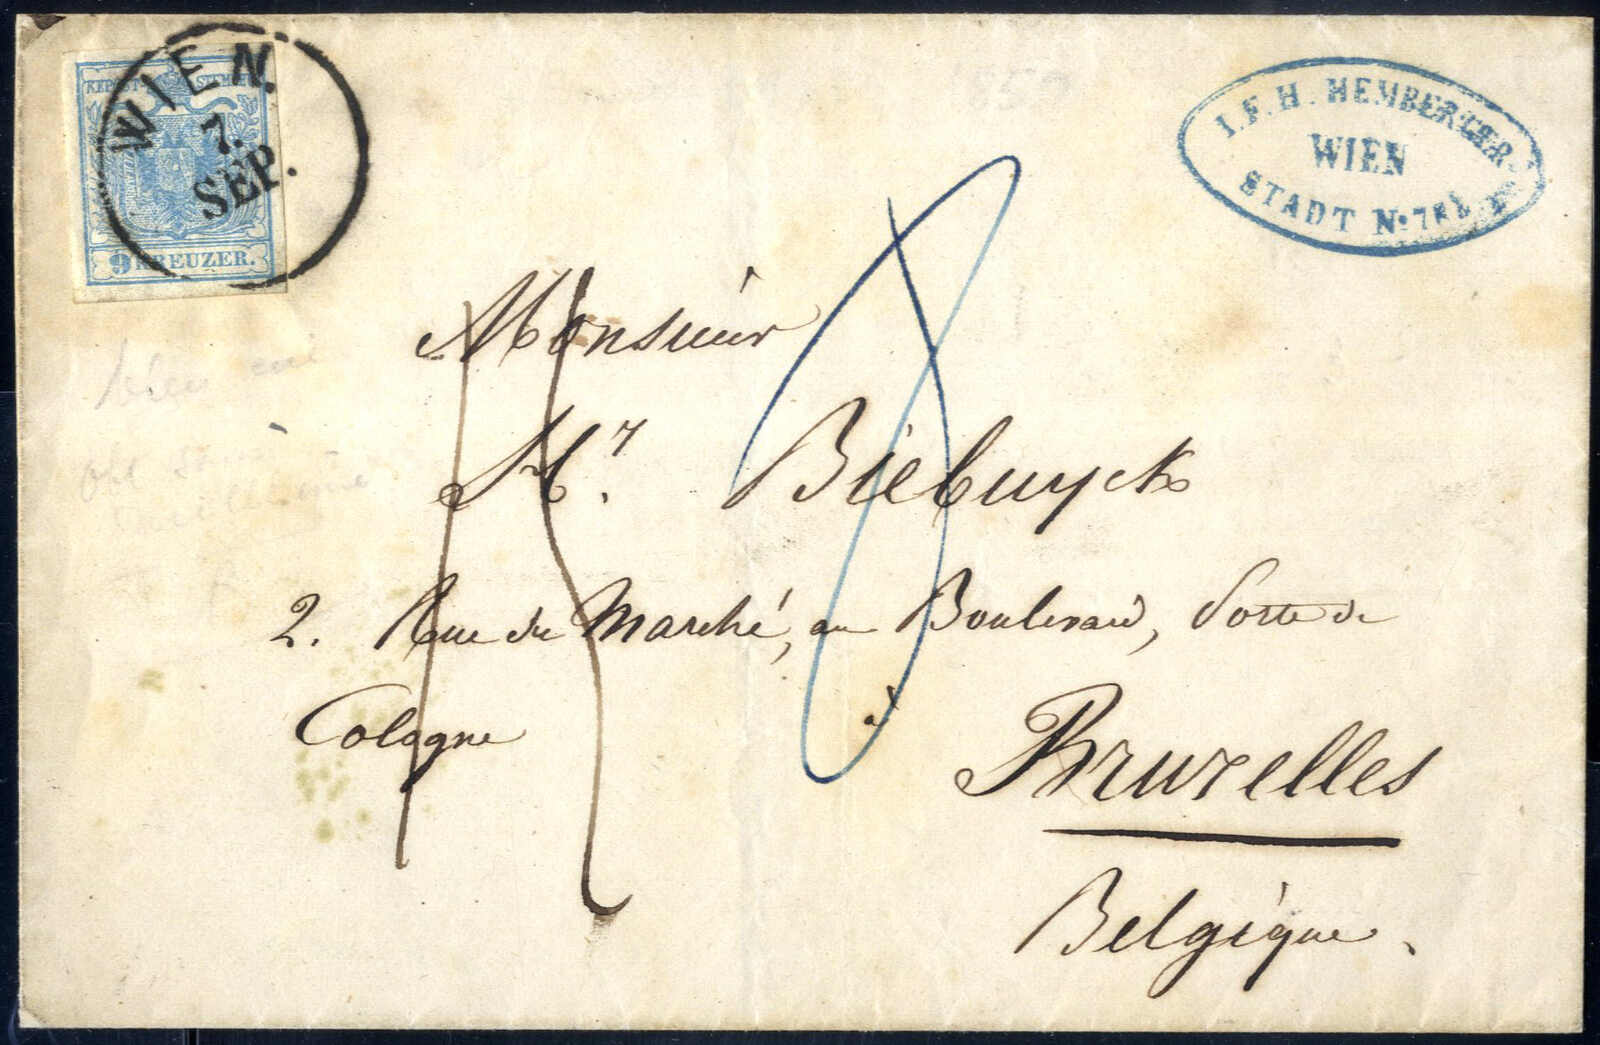 WIEN.
7.
SEP.
KKPOST-STEMPEL
9 KREUZER.
1850
I. F. H. HEMBERGER
WIEN
STADT No. 782
Monsieur
Mr. Biebuyck
2. Rue du Marché, au Boulevard, Porte de
Cologne
à
Bruxelles
Belgique.